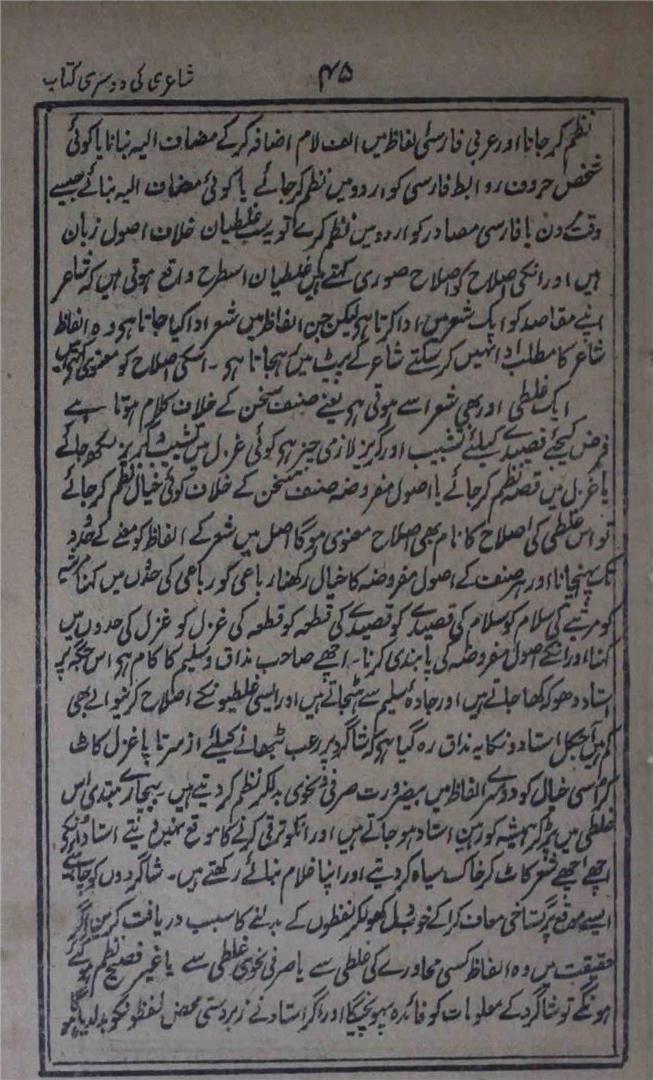 ۴۵
شاعری کی دوسری کتاب
نظم کر جانا اور عربی فارسی الفاظ میں الف لام اضافہ کر کے مضاف الیہ بنانا یا کوئی
شخص حروف روابط فارسی کو اردو میں نظم کر جائے یا کوئی مضاف الیہ بنائے جیسے
وقت کے دن یا فارسی مصادر کو اردو میں نظم کرے تو یہ سب غلطیان خلاف اصول زبان
ہیں اور انکی اصلاح کو اصلاح صوری کہتے ہیں غلطیان اسطرح واقع ہوتی ہیں کہ شاعر
اپنے مقاصد کو ایک شعر میں ادا کرتا ہو لیکن جن الفاظ میں شعر ادا کیا جاتا ہو وہ الفاظ
شاعر کا مطلب ادا نہیں کر سکتے شاعر کے پیٹ میں رہجاتا ہو ۔ اسکی اصلاح کو معنوی کہتے ہیں
ایک غلطی اور بھی شعرا سے ہوتی ہو یعنے صنف سخن کے خلاف کلام ہوتا ہے
فرض کیجئے قصیدے کیلئے تشبیب اور گریز لازمی چیز ہو کوئی غزل میں تشبیب گریز لکھ جائے
یا غزل میں قصہ نظم کر جائے یا اصول مفروضہ صنف سخن کے خلاف کوئی خیال نظم کر جائے
تو اس غلطی کی اصلاح کا نام بھی اصلاح معنوی ہوگا اصل میں شعر کے الفاظ کو معنے کے حدود
تک پہنچانا اور ہر صنف کے اصول مفروضہ کا خیال رکھنا رباعی کو رباعی کی حدوں میں کہنا مرثیہ
کو مرثیے کی سلام کو سلام کی قصیدے کو قصیدے کی قطعہ کو قطعہ کی غزل کو غزل کی حدوں میں
کہنا اور انکے اصول مفروضہ کی پابندی کرنا ۔ اچھے صاحب مذاق و سلیم کا کام ہو اس جگہ پر
استاد دھوکھا جاتے ہیں اور جادہ سلیم سے ہٹجاتے ہیں اور ایسی غلطیونکے اصلاح کرنیوالے بھی
کم ہیں آجکل استادونکا یہ مذاق رہ گیا ہو کہ شاگرد پر رعب بٹھانے کیلئے از سر تا پا غزل کاٹ
کر اسی خیال کو دوسرے الفاظ میں بضرورت صرفی نحوی بدلکر نظم کر دیتے ہیں ۔ بیچارے مبتدی اس
غلطی میں پڑ کر ہمیشہ کو رہین استاد ہو جاتے ہیں اور انکو ترقی کرنے کا موقع نہیں دیتے استاد انکے
اچھے اچھے شعر کاٹ کر خاک سیاہ کر دیتے اور اپنا غلام بنائے رکھتے ہیں ۔ شاگردوں کو چاہیے
ایسے موقع پر گستاخی معاف کرا کے خوب دل کھولکر لفظوں کے بدلنے کا سبب دریافت کریں اگر
حقیقت میں وہ الفاظ کسی محاورے کی غلطی سے یا صرفی نحوی غلطی سے یا غیر فصیح نظم ہوئے
ہونگے تو شاگرد کے معلومات کو فائدہ پہونچیگا اور اگر استاد نے زبردستی محض لفظونکو بدلدیا